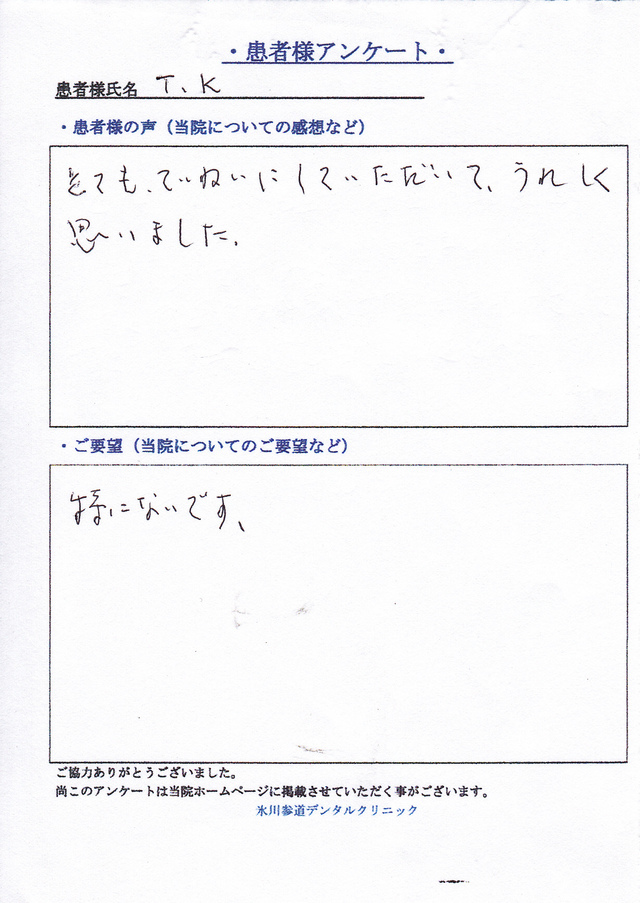 ・患者様アンケート・
患者様氏名 T、K
・患者様の声（当院についての感想など）
とても、ていねいにしていただいて、うれしく
思いました。
・ご要望（当院についてのご要望など）
特にないです、
ご協力ありがとうございました。
尚このアンケートは当院ホームページに掲載させていただく事がございます。
氷川参道デンタルクリニック